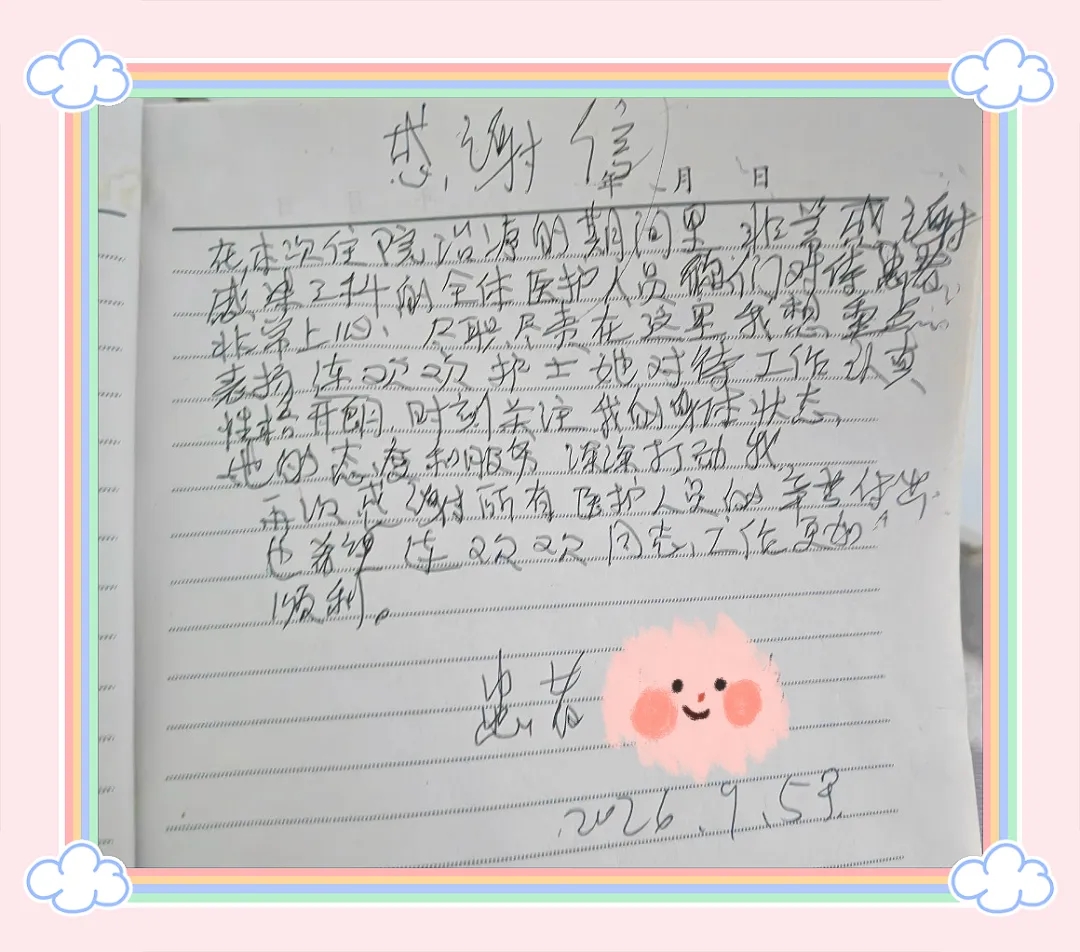 感谢信
年 月 日
在本次住院治疗的期间里 非常感谢
感染科的全体医护人员 他们对待患者
非常上心、尽职尽责在这里我想重点
表扬 连欢欢护士 她对待工作认真
性格开朗 时刻关注我的身体状态
她的态度和服务 深深打动我
再次感谢所有医护人员的辛苦付出.
也希望 连欢欢同志 工作更加
顺利。
患者
2026.9.5号